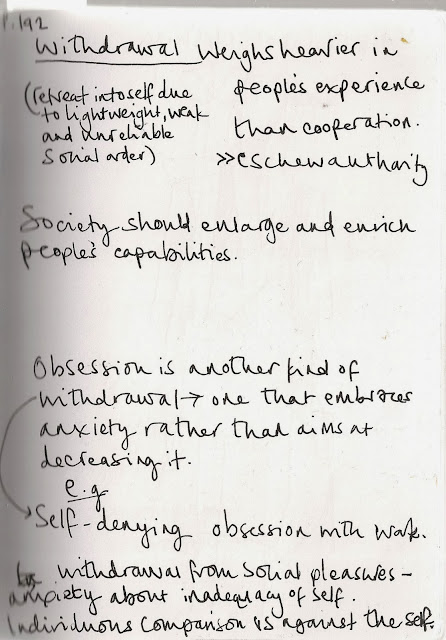 P.192
Withdrawal weighs heavier in
people's experience
than cooperation.
>> eschew authority
(retreat into self due
to lightweight, weak
and unreliable
social order)
Society should enlarge and enrich
people's capabilities.
Obsession is another kind of
withdrawal → one that embraces
anxiety rather than aims at
decreasing it.
e.g
Self-denying obsession with work.
withdrawal from social pleasures -
anxiety about inadequacy of self.
Individuous comparison is against the self.